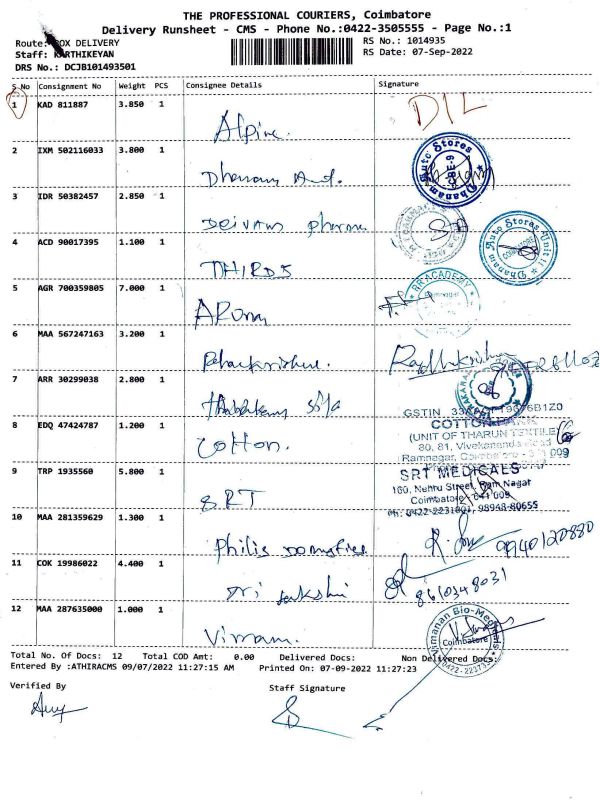 THE PROFESSIONAL COURIERS, Coimbatore
Delivery Runsheet - CMS - Phone No.:0422-3505555 - Page No.:1
Route: BOX DELIVERY
RS No.: 1014935
Staff: KARTHIKEYAN
RS Date: 07-Sep-2022
DRS No.: DCJB101493501
S No Consignment No Weight PCS Consignee Details Signature
1 KAD 811887 3.850 1 Alpine. DIL
2 IXM 502116033 3.800 1 Dhanam
Dhanam Auto Stores
CBE-9
3 IDR 50382457 2.850 1 Deivam pharma
4 ACD 90017395 1.100 1 THIRD5
Dhanam Auto Stores Unit II
COIMBATORE
5 AGR 700359805 7.000 1
RR ACADEMY
6 MAA 567247163 3.200 1 Radhakrishna
7 ARR 30299038 2.800 1
GSTIN
8 EDQ 47424787 1.200 1 Cotton.
COTTON
(UNIT OF THARUN TEXTILE)
80, 81, Vivekananda Road
Ramnagar, Coimbatore - 641 009
9 TRP 1935560 5.800 1 SRT
SRT MEDICALS
160, Nehru Street, Ram Nagar
Coimbatore - 641 009
Ph: 0422-2231001, 98948-80655
10 MAA 281359629 1.300 1 Philis 9940120880
11 COK 19986022 4.400 1 Sri 8610348031
12 MAA 287635000 1.000 1
Vimanan Bio-Medicals
Coimbatore
Total No. Of Docs: 12 Total COD Amt: 0.00 Delivered Docs: Non Delivered Docs:
Entered By :ATHIRACMS 09/07/2022 11:27:15 AM Printed On: 07-09-2022 11:27:23
Verified By Staff Signature